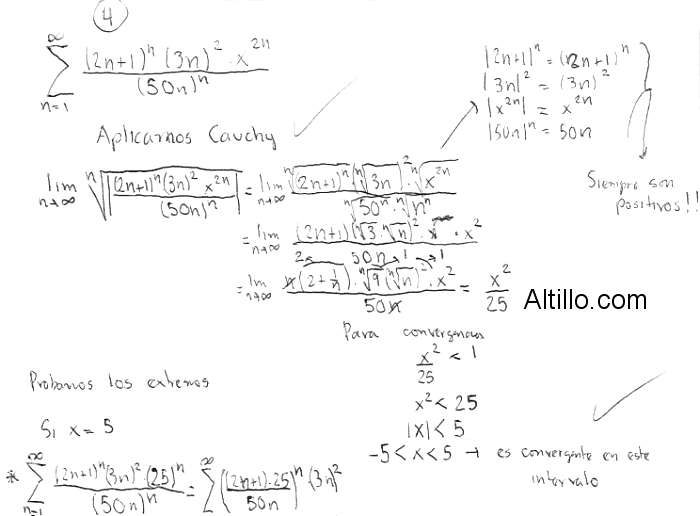 4
∞ ∑ n=1 (2n+1)^n (3n)^2 · x^{2n} / (50n)^n
|2n+1|^n = (2n+1)^n
|3n|^2 = (3n)^2
|x^{2n}| = x^{2n}
|50n|^n = 50n
Siempre son
positivos!!
Aplicamos Cauchy
lim n→∞ ⁿ√|(2n+1)^n (3n)^2 x^{2n} / (50n)^n| = lim n→∞ ⁿ√(2n+1)^n (ⁿ√3n)^2 · ⁿ√x^{2n} / ⁿ√50^n · ⁿ√n^n
= lim n→∞ (2n+1) (ⁿ√3 · ⁿ√n)^2 · x^2 / 50n
= lim n→∞ n(2 + 1/n) · ⁿ√9 (ⁿ√n)^2 · x^2 / 50n = x^2 / 25
2 1 1
Altillo.com
Para convergencia
x^2 / 25 < 1
x^2 < 25
|x| < 5
-5 < x < 5 → es convergente en este
intervalo
Probamos los extremos
Si x = 5
* ∞ ∑ n=1 (2n+1)^n (3n)^2 · (25)^n / (50n)^n = ∞ ∑ ((2n+1) · 25 / 50n)^n · (3n)^2